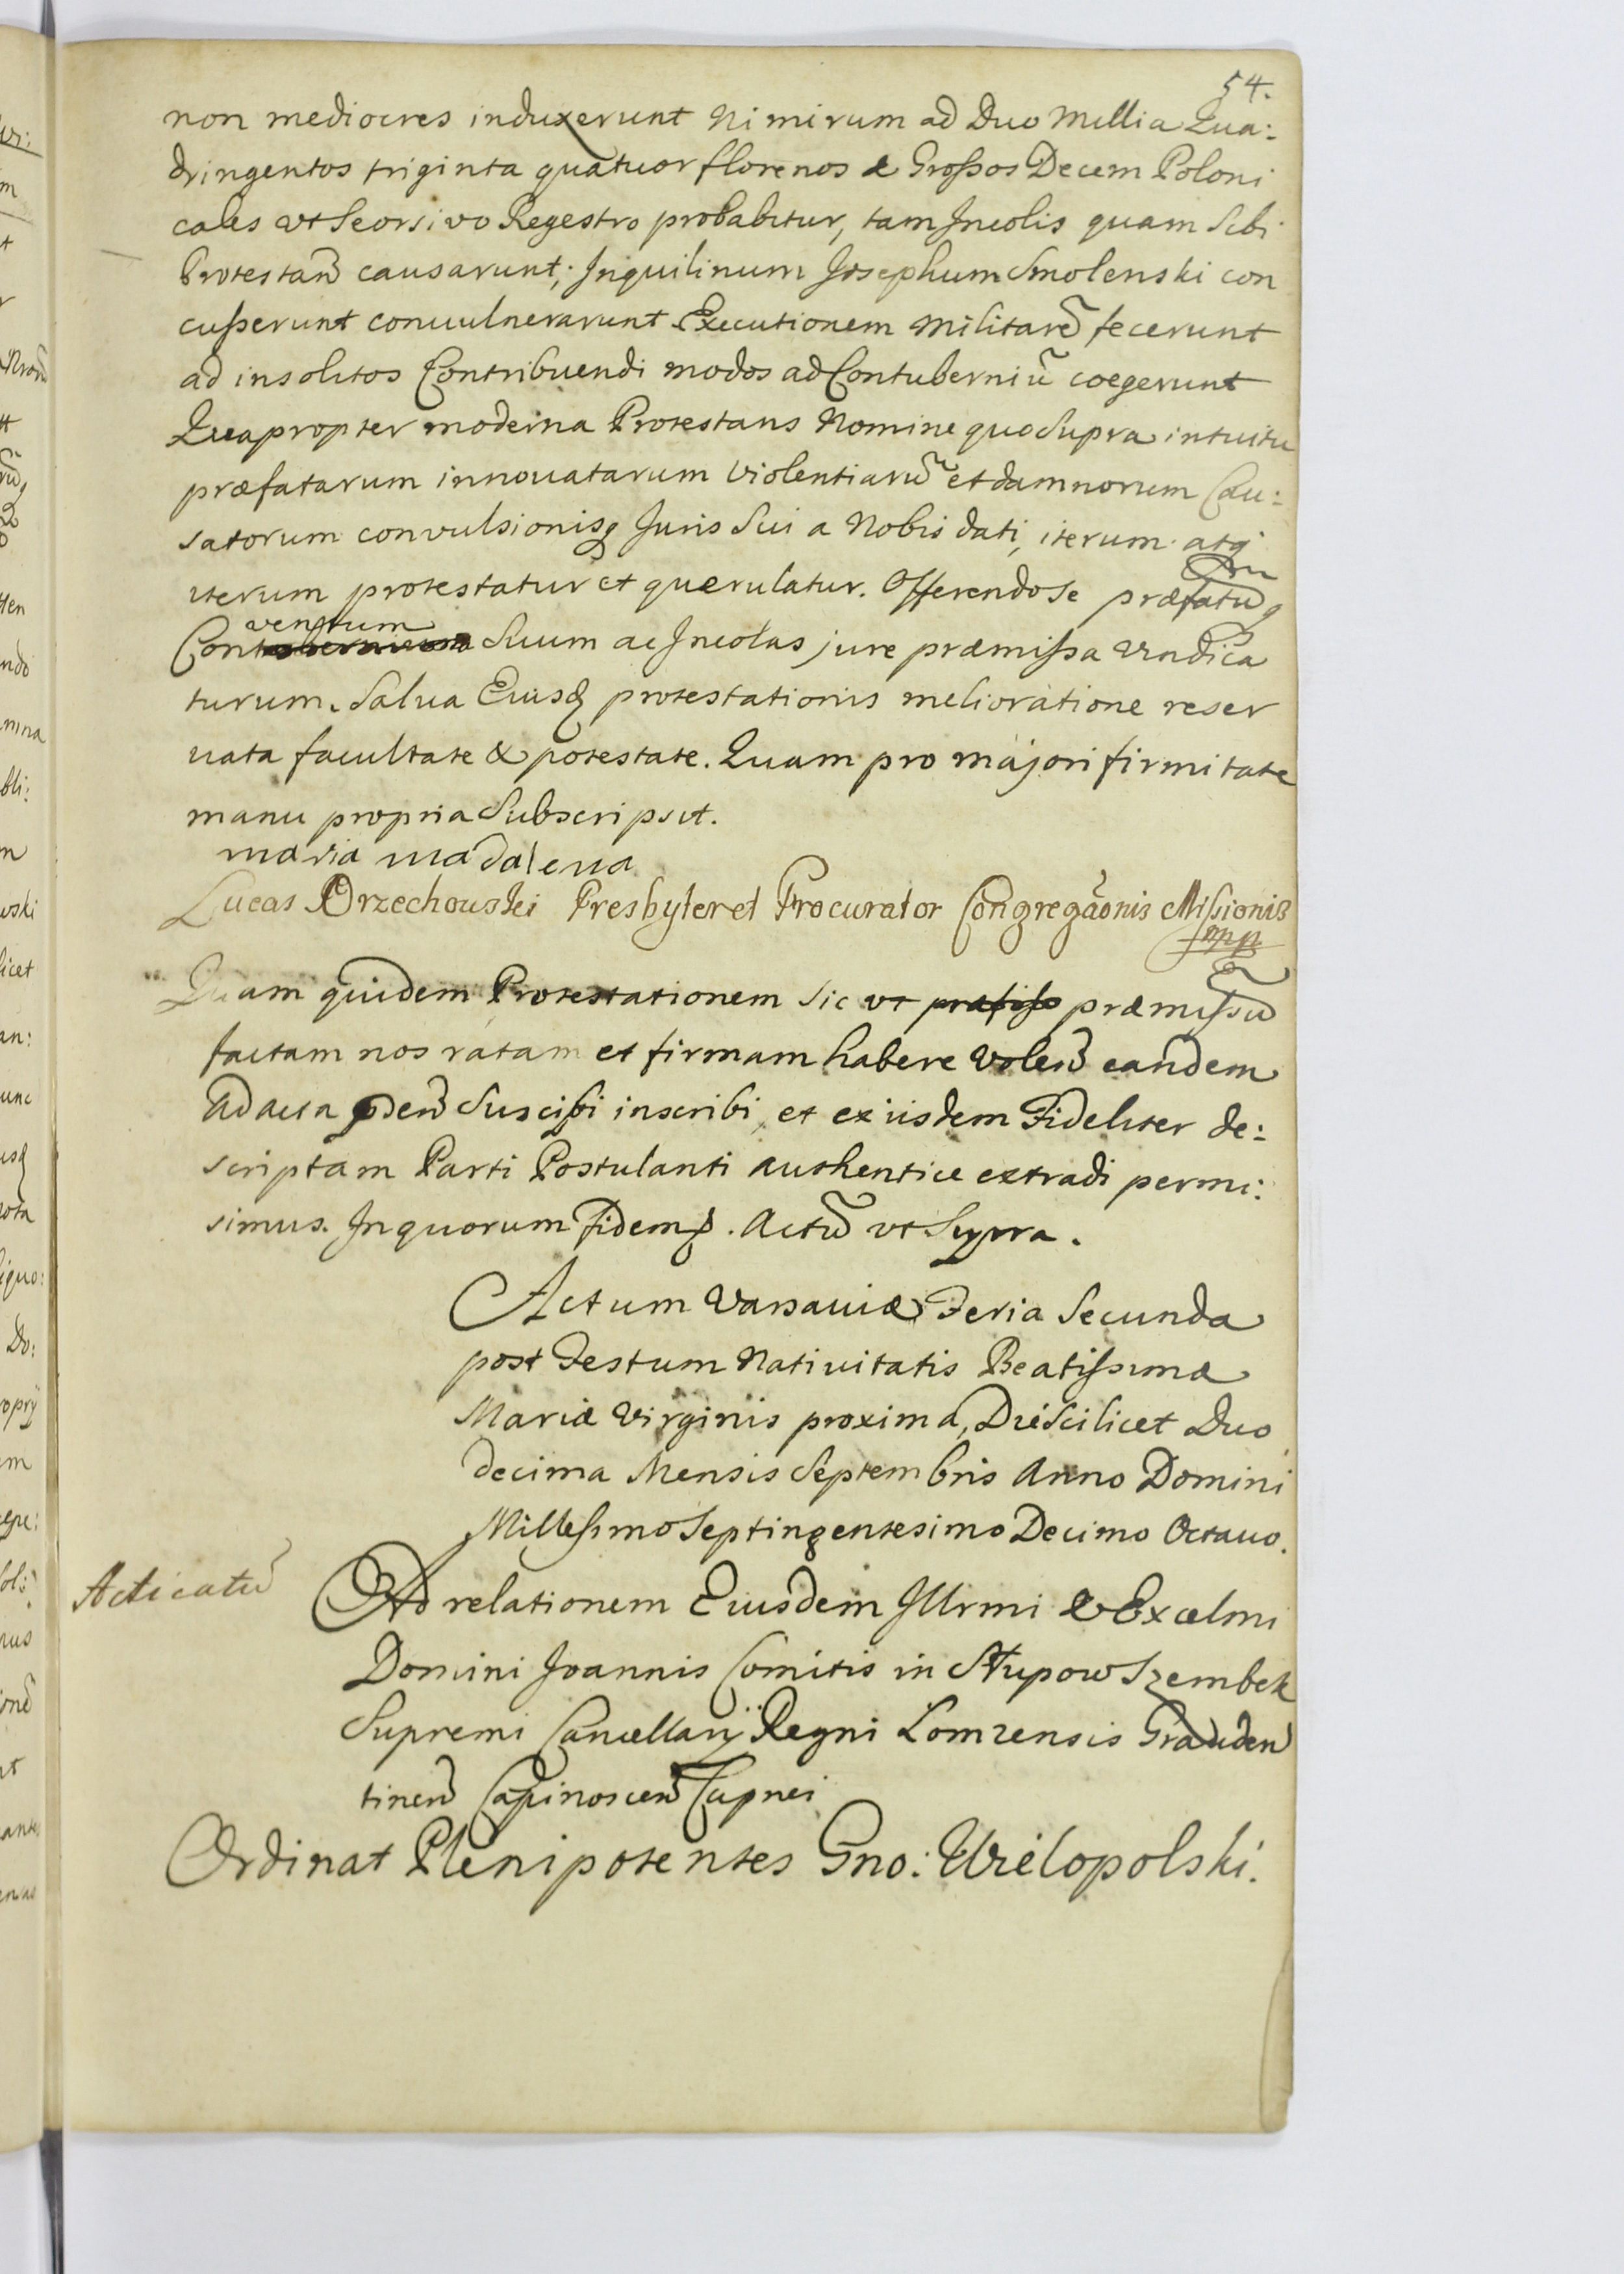 54.
non mediocres induxerunt Nimirum ad Duo Millia Qua:
dringentos triginta quatuor florenos & Grossos Decem Poloni
cales ut Seorsivo Regestro probabitur, tam Incolis quam Sibi
Protestan̄ causarunt; Inquilinum Josephum Smolenski con
cusserunt convulnerarunt Executionem Militarē fecerunt
ad insolitos Contribuendi modos ad Contuberniū coegerunt
Quapropter moderna Protestans Nomine quo Supra intuitu
præfatarum innovatarum Violentiarū et damnorum Cau:
satorum convulsionisq Juris Sui a Nobis dati, iterum atq
iterum protestatur et quærulatur. Offerendo se præfatū
ventum
Con Suum ac Incolas jure præmissa vindica
turum. Salva Eiusq protestationis melioratione reser
uata facultate & potestate. Quam pro majori firmitate
manu propria Subscripsit.
maria madalena
Lucas Orzechouski Presbyter et Procurator Congregãonis Missionis
mpp
Quam quidem Protestationem sic ut præmissū
factam nos ratam et firmam habere Volen̄ eandem
ad acta pden̄ Suscipi inscribi, et ex iisdem Fideliter de:
scriptam Parti Postulanti authentice extradi permi:
simus. In quorum fidem p. Actū ut Supra.
Actum Varsaviæ Feria Secunda
post Festum Nativitatis Beatissimæ
Mariæ Virginis proxima, Die Scilicet Duo
decima Mensis Septembris Anno Domini
Millesimo Septingentesimo Decimo Octavo.
Acticatū
Ad relationem Eiusdem Illrmi & Excelmi
Domini Joannis Comitis in Słupow Szembek
Supremi Cancellarij Regni Lomzensis Grauden
tinen̄ Capinoscen̄ Capnei
Ordinat Plenipotentes Gno: Wielopolski.